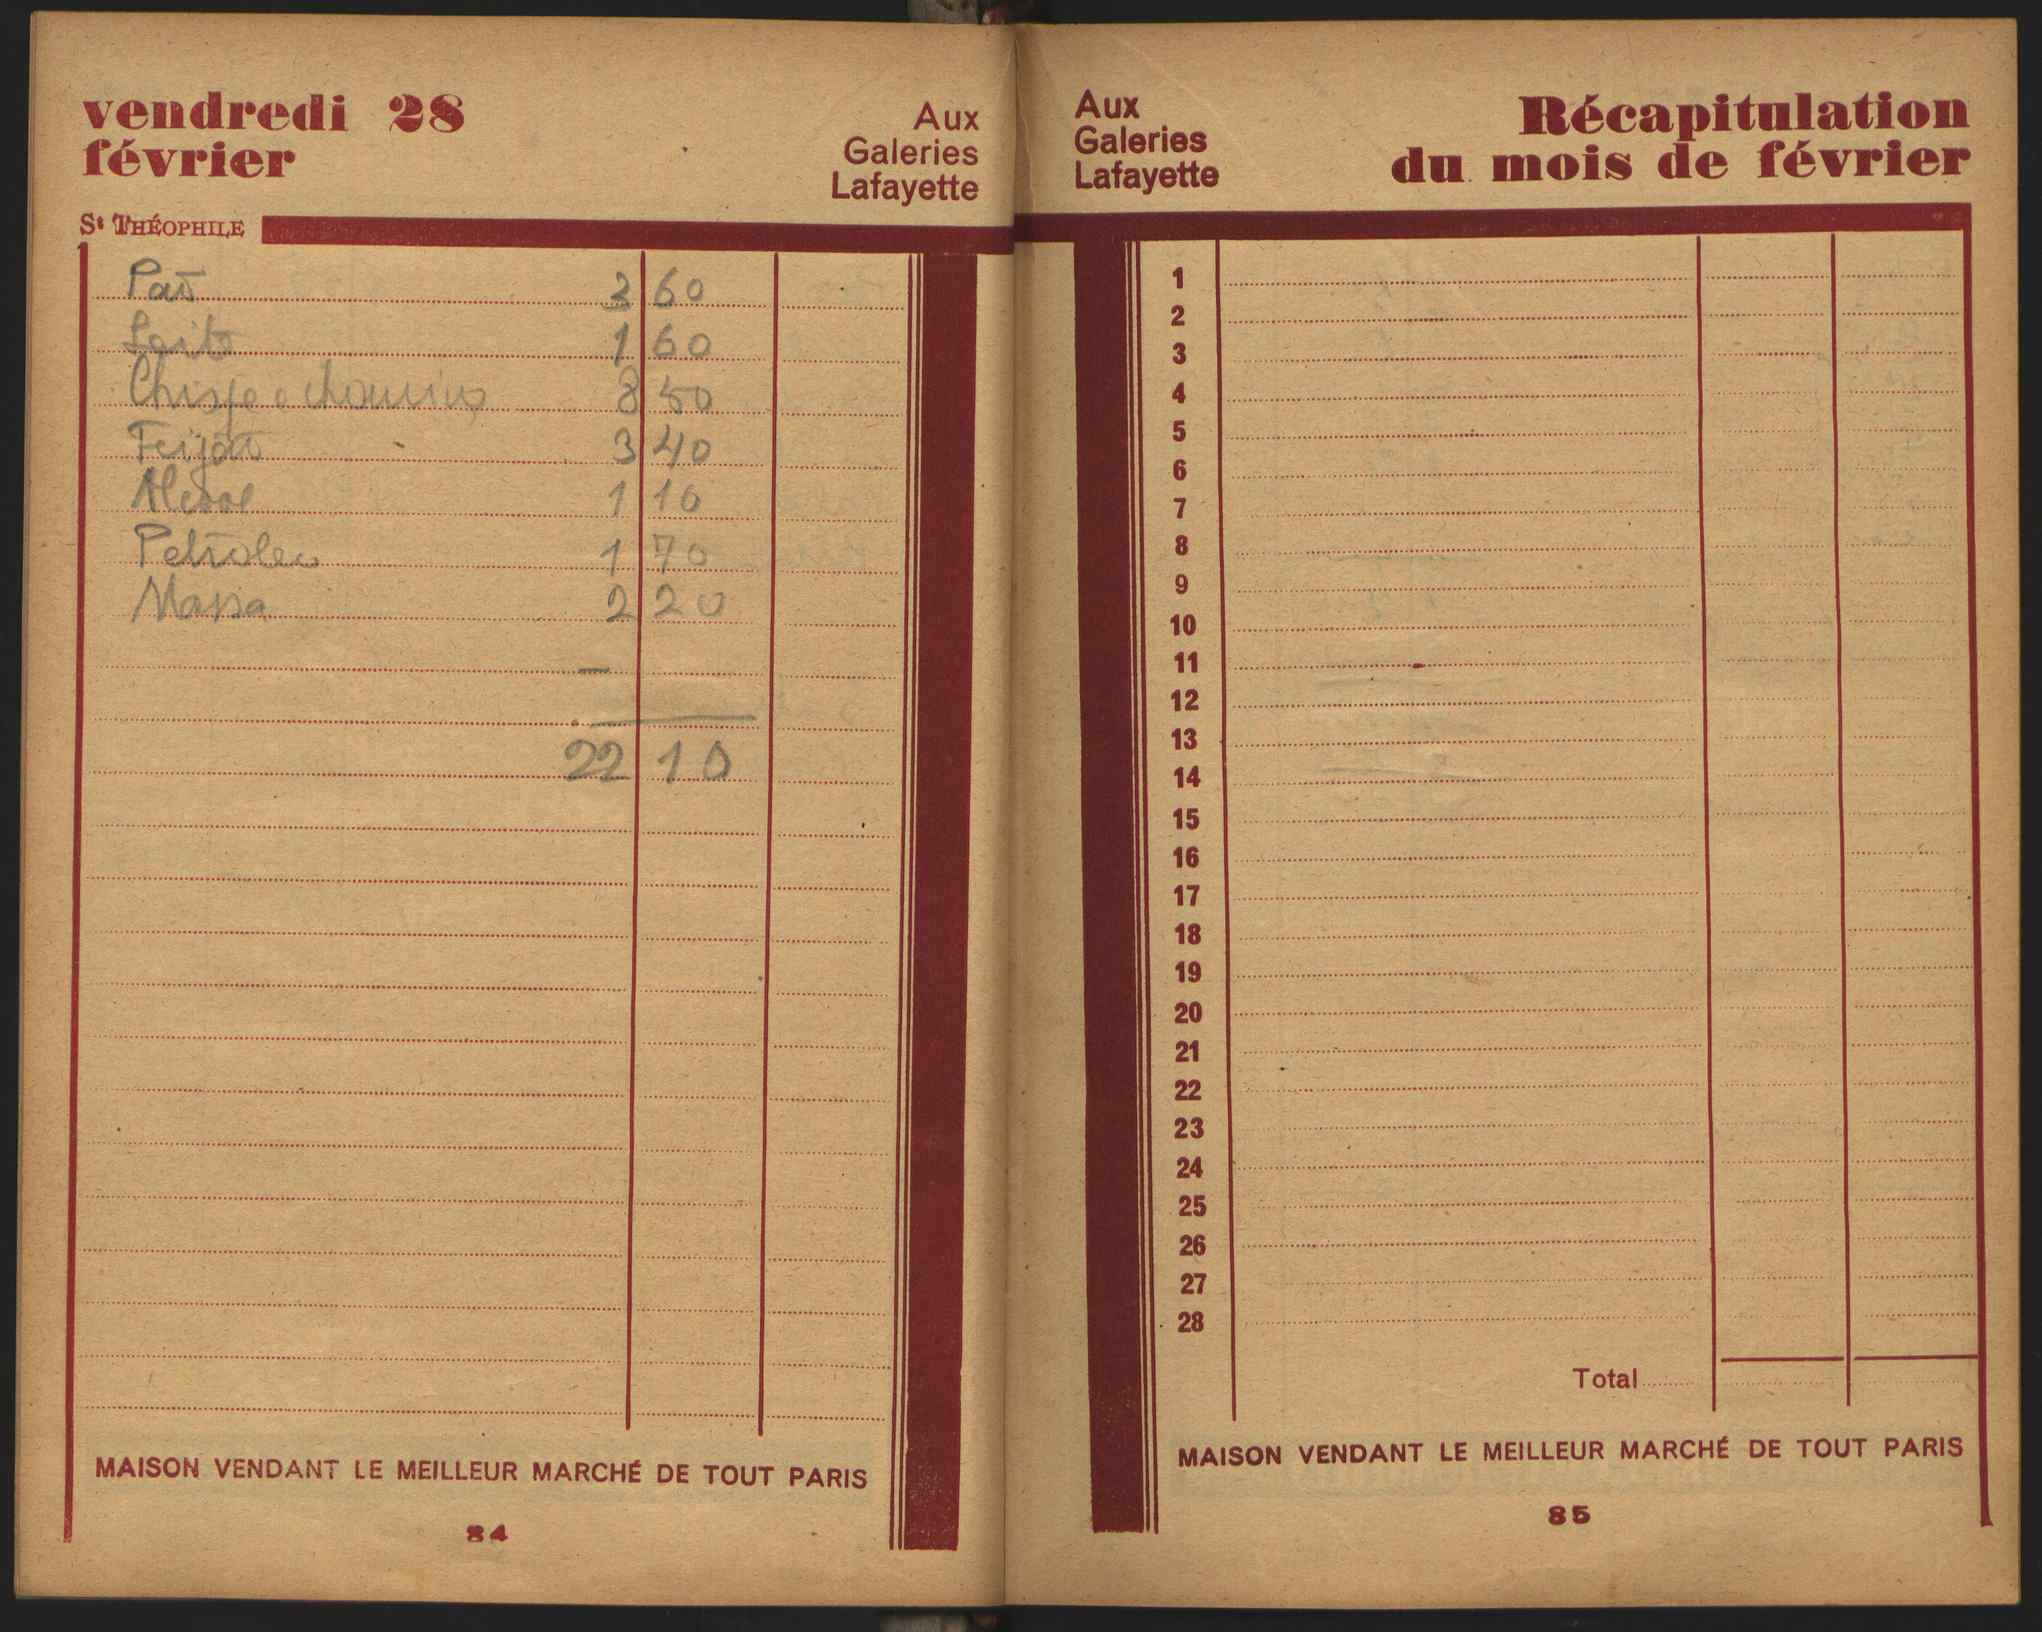 vendredi 28
février
Aux
Galeries
Lafayette
St THÉOPHILE
Pão 3 60
Leite 1 60
Chispe e chouriço 8 50
Feijão 3 40
Alcool 1 10
Petroleo 1 70
Massa 2 20
22 10
MAISON VENDANT LE MEILLEUR MARCHÉ DE TOUT PARIS
84
Aux
Galeries
Lafayette
Récapitulation
du mois de février
1
2
3
4
5
6
7
8
9
10
11
12
13
14
15
16
17
18
19
20
21
22
23
24
25
26
27
28
Total
MAISON VENDANT LE MEILLEUR MARCHÉ DE TOUT PARIS
85